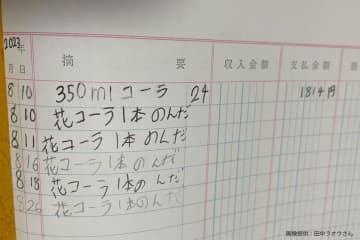 2023年
月 日 摘 要 収入金額 支払金額
8 10 350ml コーラ 24 1814円
8 10 花コーラ 1本 のんだ
8 11 花コーラ 1本 のんだ
8 16 花コーラ 1本 のんだ
8 18 花コーラ 1本 のんだ
8 26 花コーラ 1本 のんだ
画像提供:田中ラオウさん